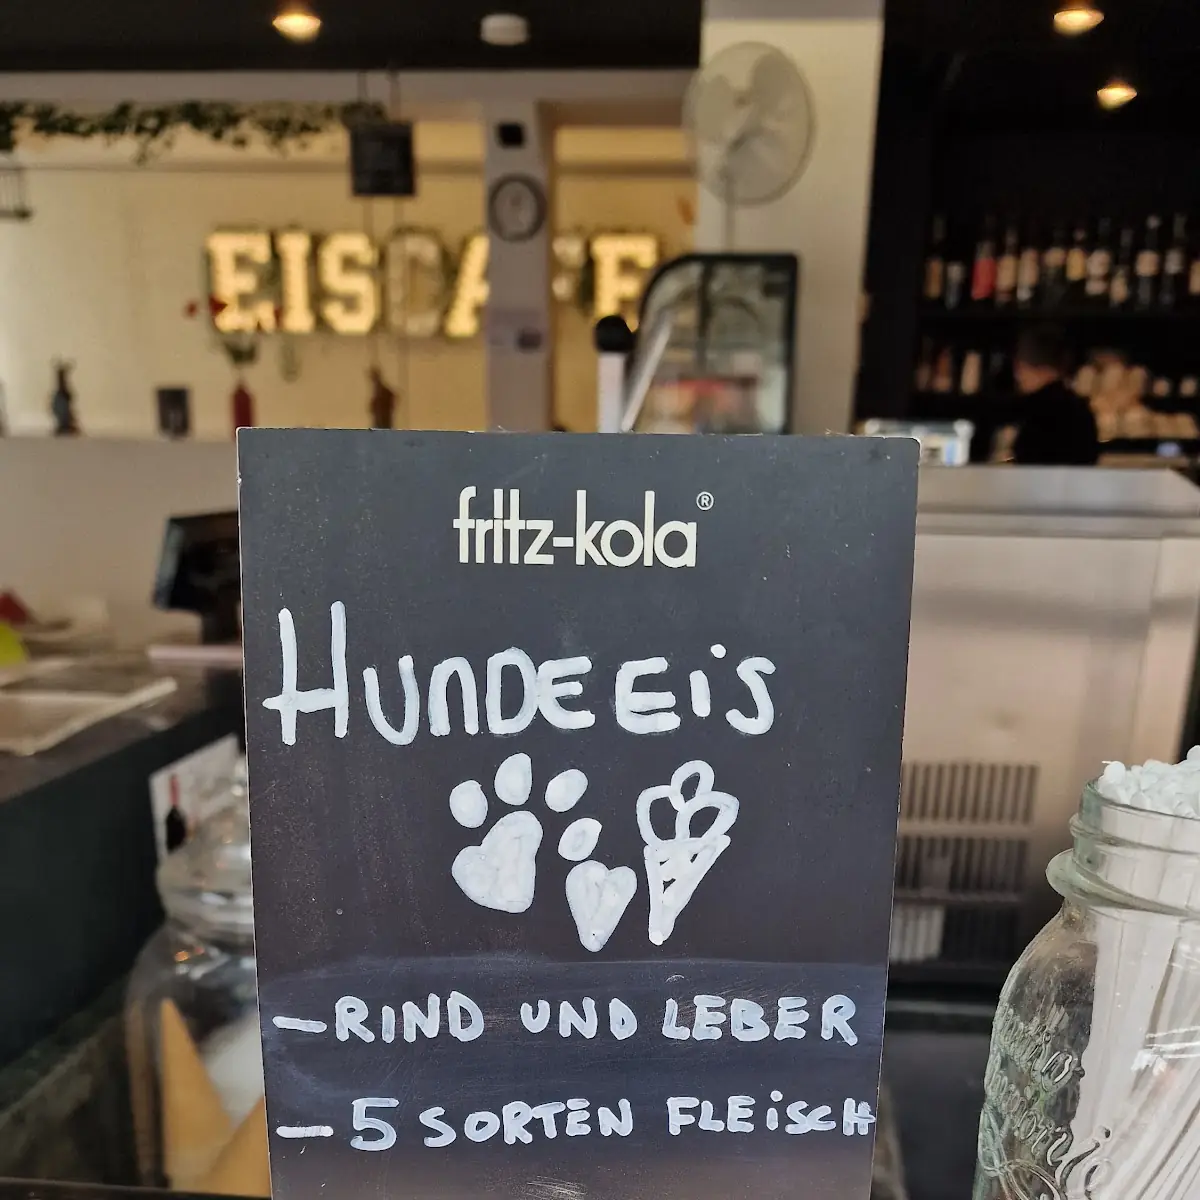 EISCAFE
fritz-kola®
HUNDEEiS
-RIND UND LEBER
- 5 SORTEN FLEiSCH